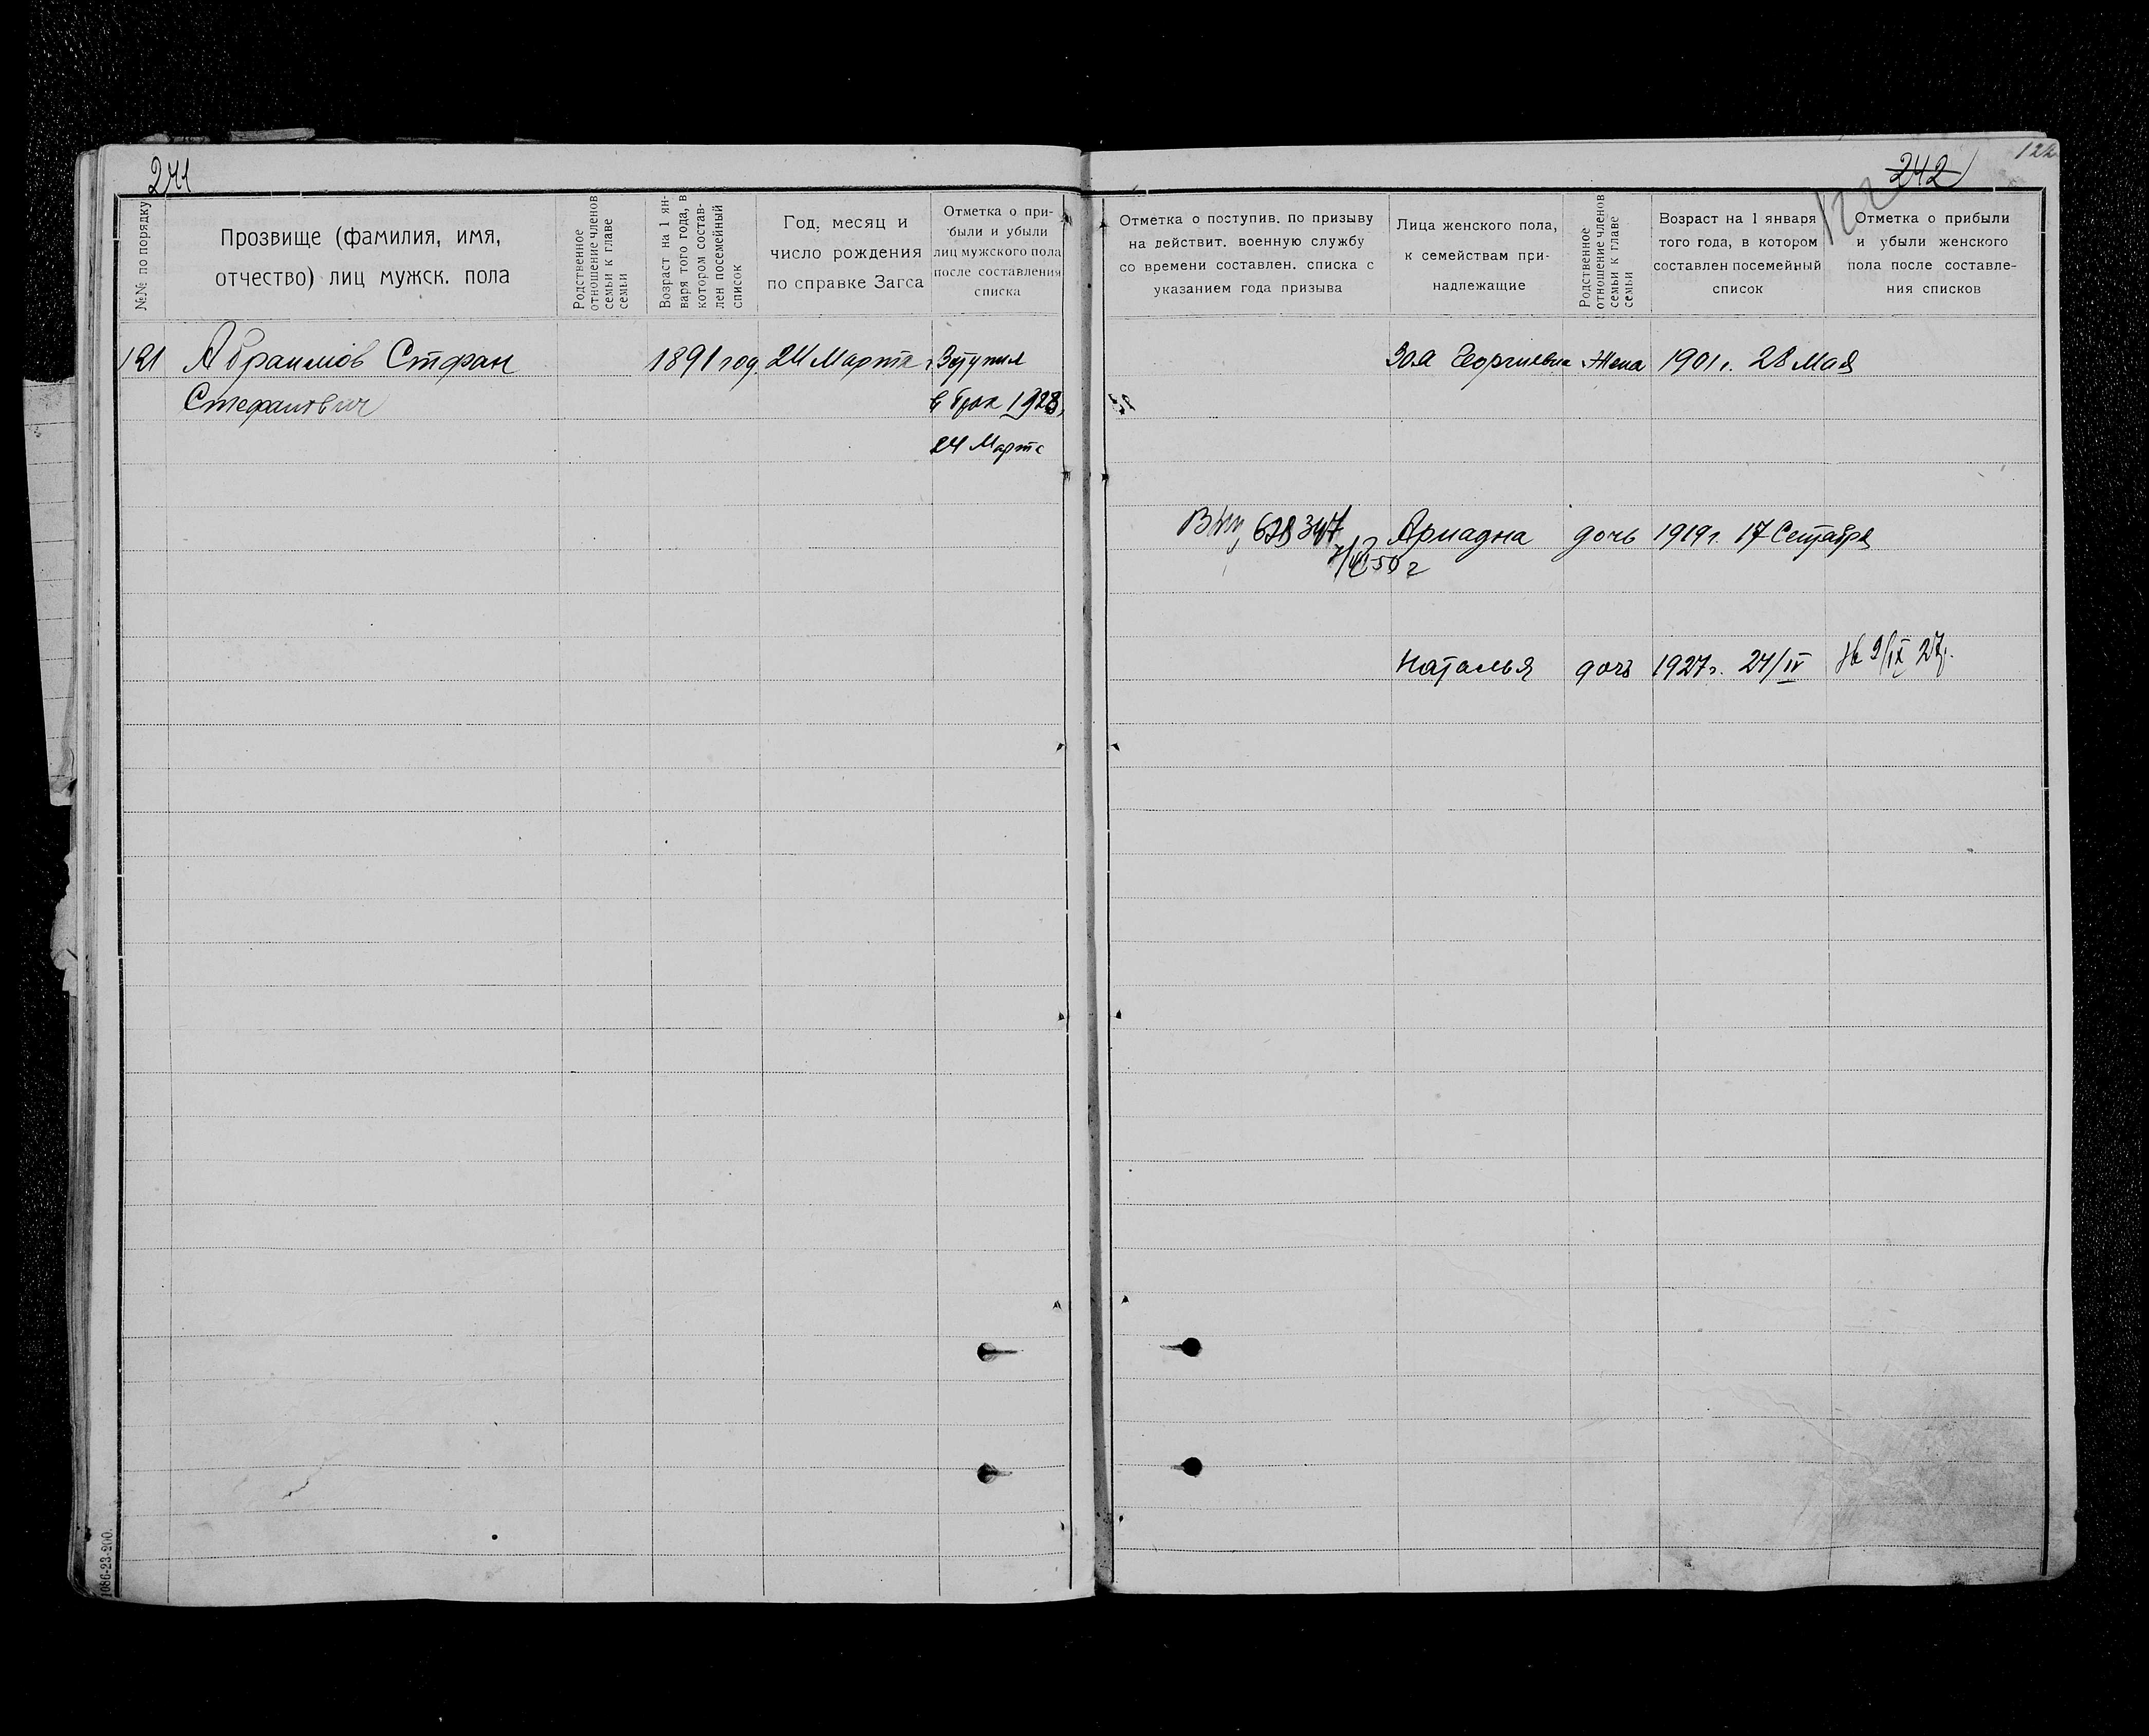 241
№№ по порядку
Прозвище (фамилия, имя,
отчество) лиц мужск. пола
Родственное
отношение членов
семьи к главе
семьи
Возраст на 1 ян-
варя того года, в
котором состав-
лен посемейный
список
Год, месяц и
число рождения
по справке Загса
Отметка о при-
были и убыли
лиц мужского пола
после составления
списка
121 Абраимов Стефан 1891 год. 24 Марта Вступил
Стефанович в брак 1928
24 Марта
1086-23-200.
122
242
122
Отметка о поступив. по призыву
на действит. военную службу
со времени составлен. списка с
указанием года призыва
Лица женского пола,
к семействам при-
надлежащие
Родственное
отношение членов
семьи к главе
семьи
Возраст на 1 января
того года, в котором
составлен посемейный
список
Отметка о прибыли
и убыли женского
пола после составле-
ния списков
Зоя Георгиевна Жена 1901 г. 28 Мая
628347 Ариадна дочь 1919 г. 17 Сентября
50 г
Наталья дочь 1927 г. 24/IV 9/IX 27 г.